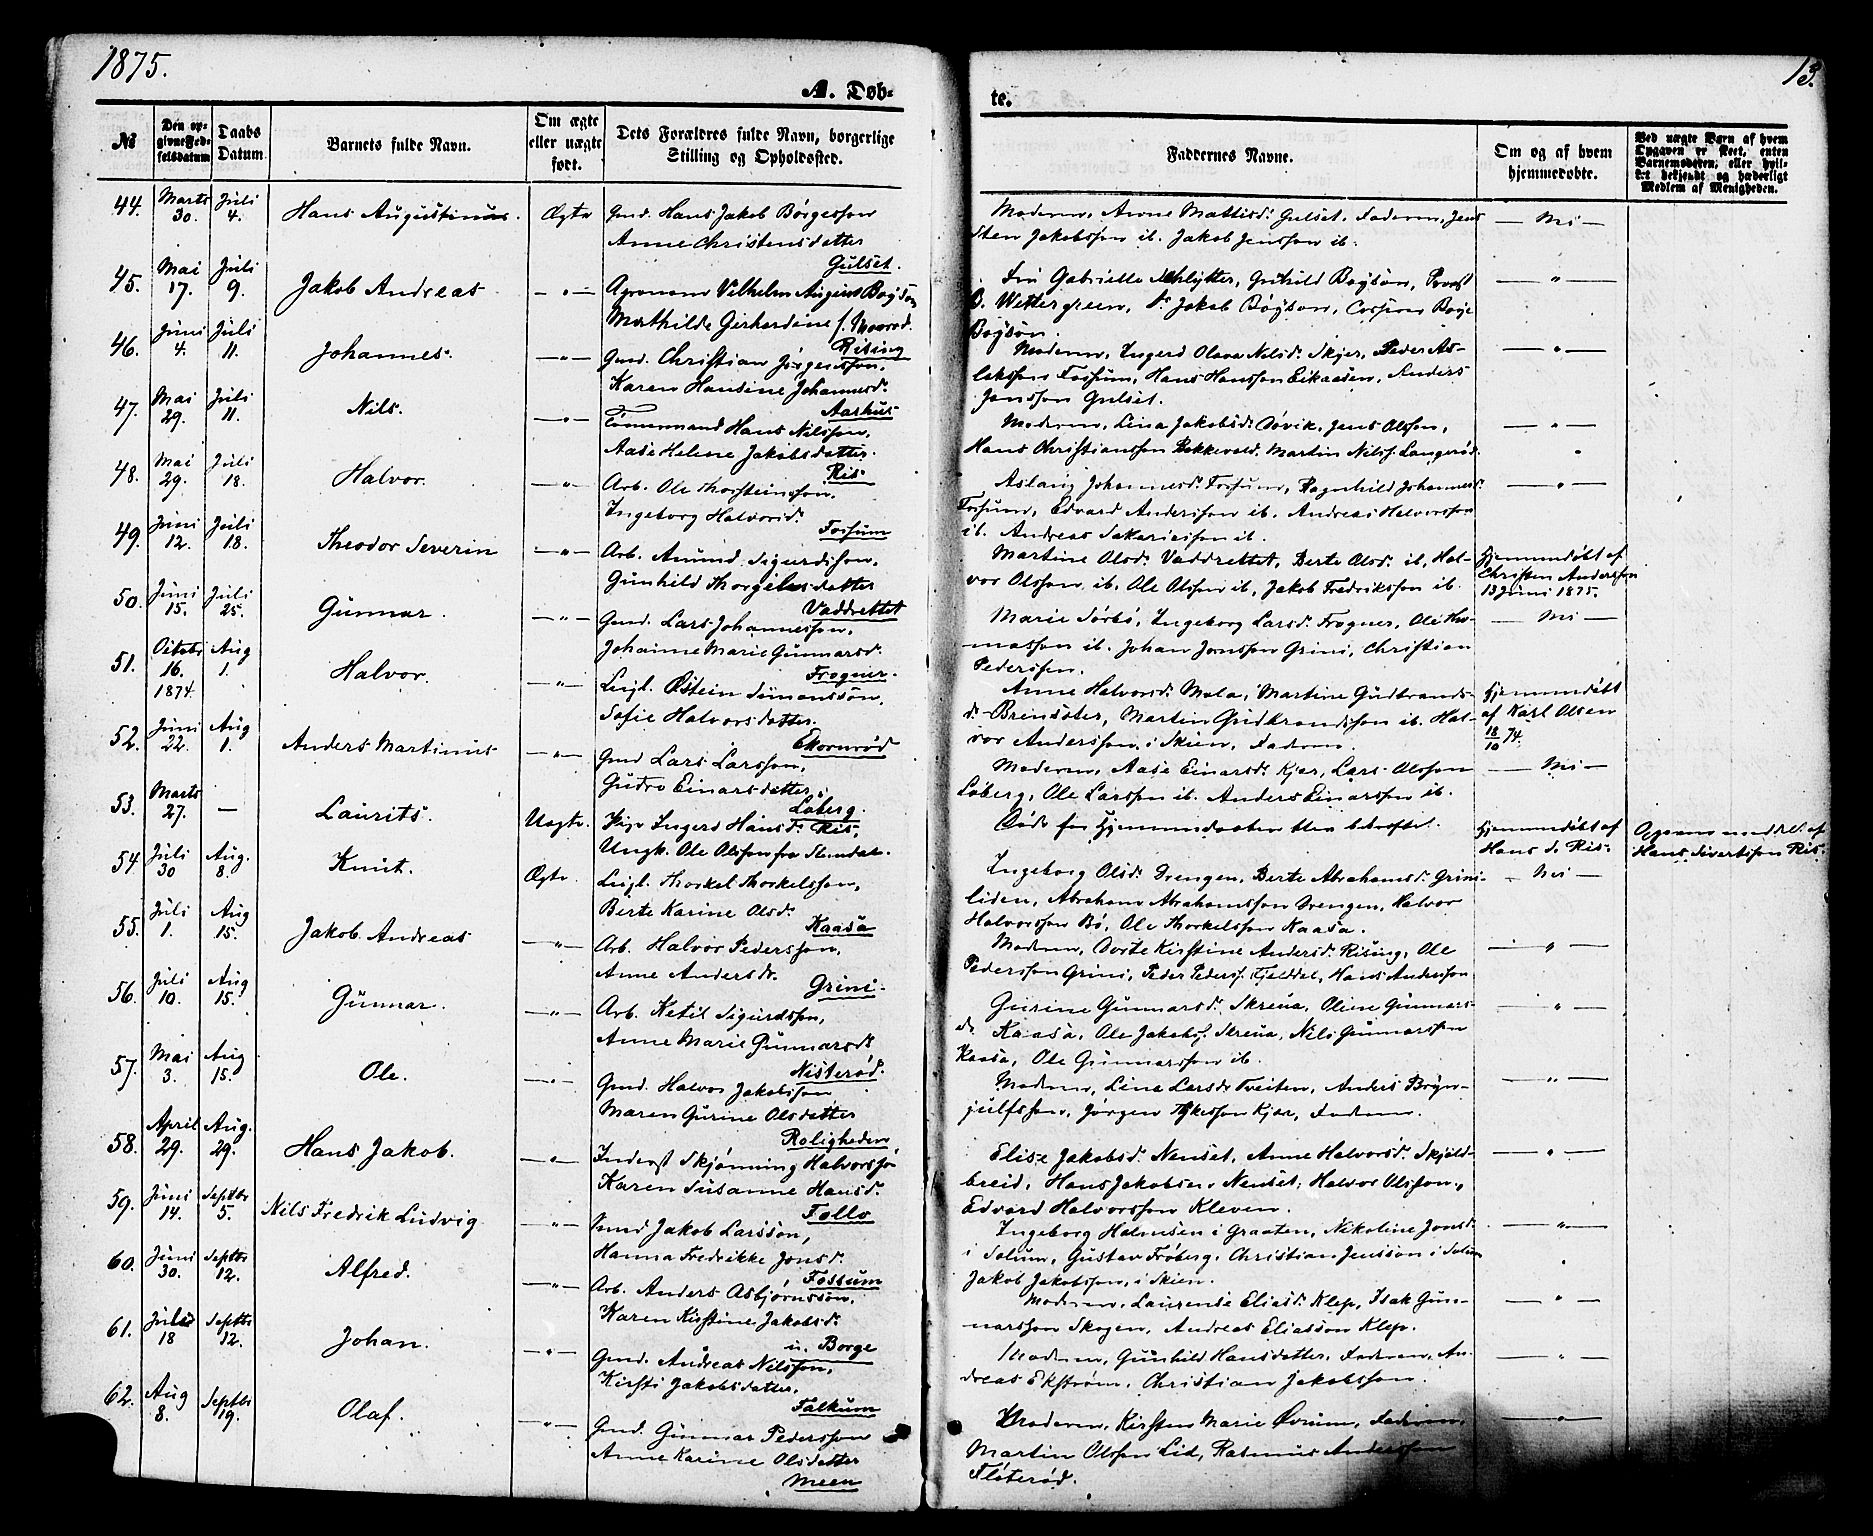 1875.
13.
A. Døb-
te.
№
Den op-
givne Fød-
selsdatum
Daabs
Datum.
Barnets fulde Navn.
Om ægte
eller uægte
født.
Dets Forældres fulde Navn, borgerlige
Stilling og Opholdssted.
Faddernes Navne.
Om og af hvem
hjemmedøbt.
Ved uægte Barn af hvem
Opgaven er skeet, enten
Barnemoderen, eller hvil-
ket bekjendt og hæderligt
Medlem af Menigheden.
44. Marts 30. Juli 4. Hans Augustinus. Ægte Gmd. Hans Jakob Børgesson
Anne Christensdatter
Gulset.
Moderen, Anne Mattisd. Gulset, Faderen, Jens
Sten Jakobsson ib. Jakob Jensson ib.
— Nei —
45. Mai 17. Juli 9. Jakob Andreas — " — Agronom Vilhelm August Bøyson
Mathilde Gerhardine f.
Rising
Gabrielle Schlytter, Gunhild Bøyson, Provst
B. Wettergreen, Jakob Bøyson, Boye
Bøyson.
— " —
46. Juni 4. Juli 11. Johannes. — " — Gmd. Christian Jørgensson,
Karen Hansine Johannesd.
Aarhus
Moderen, Ingerd Olava Nilsd. Skjer, Peder As-
laksson Fossum, Hans Hansson Eikaasen, Anders
Jonsson Gulset.
— " —
47. Mai 29. Juli 11. Nils. — " — Tømmermand Hans Nilsson,
Aase Helene Jakobsdatter.
Ris
Moderen, Lina Jakobsd. Døvik, Jens Olsson,
Hans Christiansson Bakkevold. Martin Nilss. Langerød.
— " —
48. Mai 29. Juli 18. Halvor. — " — Arb. Ole Thorsteinsson,
Ingeborg Halvorsd.
Fossum
Aslaug Johannesd. Fossum, Ragnhild Johannesd.
Fossum, Edvard Andersson ib. Andreas Halvorsson
ib. Andreas Sakariasson ib.
— " —
49. Juni 12. Juli 18. Theodor Severin — " — Arb. Amund Sigurdsson,
Gunhild Thorgilsdatter
Vaddrettet
Martine Olsd. Vaddrettet, Berte Olsd. ib, Hal-
vor Olsson ib. Ole Olsson ib, Jakob Fredriksson ib.
Hjemmedøbt af
Christen Andersson
13 Juni 1875.
50. Juni 15. Juli 25. Gunnar. — " — Gmd. Lars Johannesson,
Johanne Marie Gunnarsd.
Frogner.
Marie Sørbø, Ingeborg Larsd. Frogner, Ole Tho-
masson ib. Johan Jonsson Grini, Christian
Pedersson.
— Nei —
51. Octobr 16. 1874. Aug 1. Halvor. — " — Leigl. Østein Simonssøn,
Sofie Halvorsdatter.
Ekornrød
Anne Halvorsd. Mæla, Martine Gudbrands-
d. Brendsæter, Martin Gudbrandsson ib. Hal-
vor Andersson, i Skien, Faderen.
Hjemmedøbt
af Karl Olsen
18/10 74.
52. Juni 22. Aug 1. Anders Martinius — " — Gmd Lars Larsson,
Gudro Einarsdatter,
Løberg.
Moderen, Aase Einarsd. Kjær, Lars Olsson
Løberg, Ole Larsson ib. Anders Einarsson ib.
— Nei —
53. Marts 27. — Laurits. Uægte. Pige Ingerd Hansd. Ris,
Ungk. Ole Olsson fra Slemdal.
Døde før Hjemmedaaben blev bekræftet.
Hjemmedøbt af
Hans S. Ris.
Opgaven meddelt af
Hans Sivertsson Ris.
54 Juli 30 Aug. 8. Knut. Ægte. Leigl. Thorkel Thorkelsson,
Berte Karine Olsd.
Kaasa
Ingeborg Olsd. Drengen, Berte Abrahamsd. Grini-
liden, Abraham Abrahamsson Drengen, Halvor
Halvorsson Bø, Ole Thorkelsson Kaasa.
— Nei —
55. Juli 1. Aug 15. Jakob Andreas — " — Arb. Halvor Pedersson,
Anne Andersdr.
Grini.
Moderen, Dorte Kirstine Andersd. Rising, Ole
Pedersson Grini, Peder Peders. Fjelddal, Hans Andersson
— " —
56. Juli 10. Aug 15. Gunnar. — " — Arb. Ketil Sigurdsson,
Anne Marie Gunnarsd.
Nisterød.
Gurine Gunnarsd. Skreua, Oline Gunnars-
d. Kaasa, Ole Jakobs. Skreua, Nils Gunnarsson
Kaasa, Ole Gunnarsson ib.
— " —
57. Mai 3. Aug 15. Ole. — " — Gmd. Halvor Jakobsson
Maren Gurine Olsdatter
Roligheden
Moderen, Lina Larsd. Tveiten, Anders Bryn-
julfsson, Jørgen Kjær, Faderen.
— " —
58. April 29. Aug. 29. Hans Jakob. — " — Inderst Skjønning Halvorssøn
Karen Susanne Hansd.
Follo
Elise Jakobsd. Nenset, Anne Halvorsd. Skjold-
breid, Hans Jakobsn. Nenset, Halvor Olsson,
Edvard Halvorsson Kleven.
— " —
59. Juni 14. Septbr 5. Nils Fredrik Ludvig — " — Gmd Jakob Larsson,
Hanna Fredrikke Jonsd.
Fossum
Ingeborg Halvorsen i Graaten, Nikoline Jonsd.
i Solum, Gustav Frøberg, Christian Jensson i Solum
Jakob Jakobsson, i Skien.
— " —
60. Juni 30. Septbr 12. Alfred. — " — Arb. Anders Asbjørnssøn,
Karen Kirstine Jakobsd.
u. Borge
Moderen, Laurense Eliasd. Klep, Isak Gun-
narsson Skogen, Andreas Eliasson Klep.
— " —
61. Juli 18 Septbr 12. Johan. — " — Gmd. Andreas Nilsson,
Kirsti Jakobsdatter,
Falkum
Moderen, Gunhild Hansdatter, Faderen, An-
dreas Ekstrøm, Christian Jakobsson.
— " —
62. Aug 8. Septbr 19. Olaf. — " — Gmd. Gunnar Pedersson
Anne Karine Olsdatter
Meen
Moderen, Kirsten Marie Øvrum, Faderen,
Martin Olsson Lid, Rasmus Andersson
Fløterød.
— " —